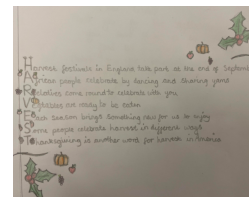 Harvest festivals in England take part at the end of September
African people celebrate by dancing and sharing yams
Relatives come round to celebrate with you
Vegetables are ready to be eaten
Each season brings something new for us to enjoy
Some people celebrate harvest in different ways
Thanksgiving is another word for harvest in America